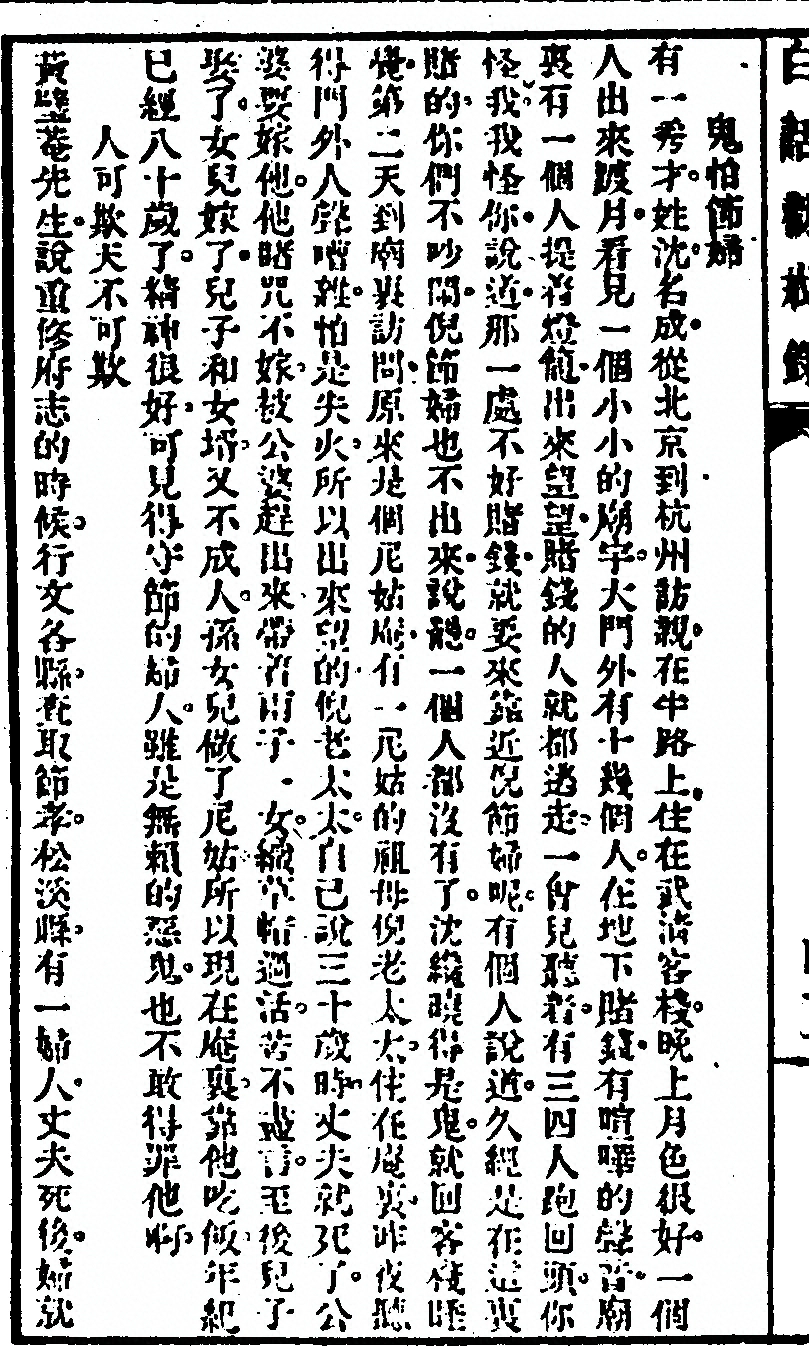 白話勸戒錄
鬼怕節婦
有一秀才。姓沈。名成。從北京到杭州訪親。在中路上。住在武清客棧。晚上月色很好。一個
人出來踱月。看見一個小小的廟宇。大門外有十幾個人。在地下賭錢。有喧嘩的聲音。廟
裏有一個人提着燈籠。出來望望。賭錢的人就都逃走。一會兒聽着。有三四人跑回頭。你
怪我。我怪你。說道。那一處不好賭錢。就要來靠近倪節婦呢。有個人說道。久經是在這裏
賭的。你們不吵鬧。倪節婦也不出來。說聽。一個人都沒有了。沈纔曉得是鬼。就回客棧睡
覺。第二天到廟裏訪問。原來是個尼姑庵。有一尼姑的祖母倪老太太。住在庵裏。昨夜聽
得門外人聲嘈雜。怕是失火。所以出來望的。倪老太太。自己說三十歲時。丈夫就死了。公
婆要嫁他。他賭咒不嫁。被公婆趕出來。帶着兩子一女。織草帽過活。苦不盡言。至後兒子
娶了。女兒嫁了。兒子和女壻又不成人。孫女兒做了尼姑。所以現在庵裏。靠他吃飯。年紀
已經八十歲了。精神很好。可見得守節的婦人。雖是無賴的惡鬼。也不敢得罪他啊。
人可欺天不可欺
黃壁菴先生。說重修府志的時候。行文各縣。查取節孝。松溪縣。有一婦人。丈夫死後。婦就